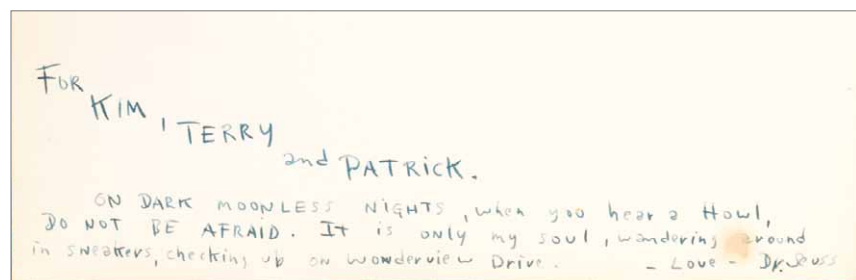 FOR
KIM,
TERRY
and PATRICK.
ON DARK MOONLESS NIGHTS, when you hear a Howl,
DO NOT BE AFRAID. It is only my soul, wandering around
in sneakers, checking up on Wonderview Drive.
- Love - Dr. Seuss